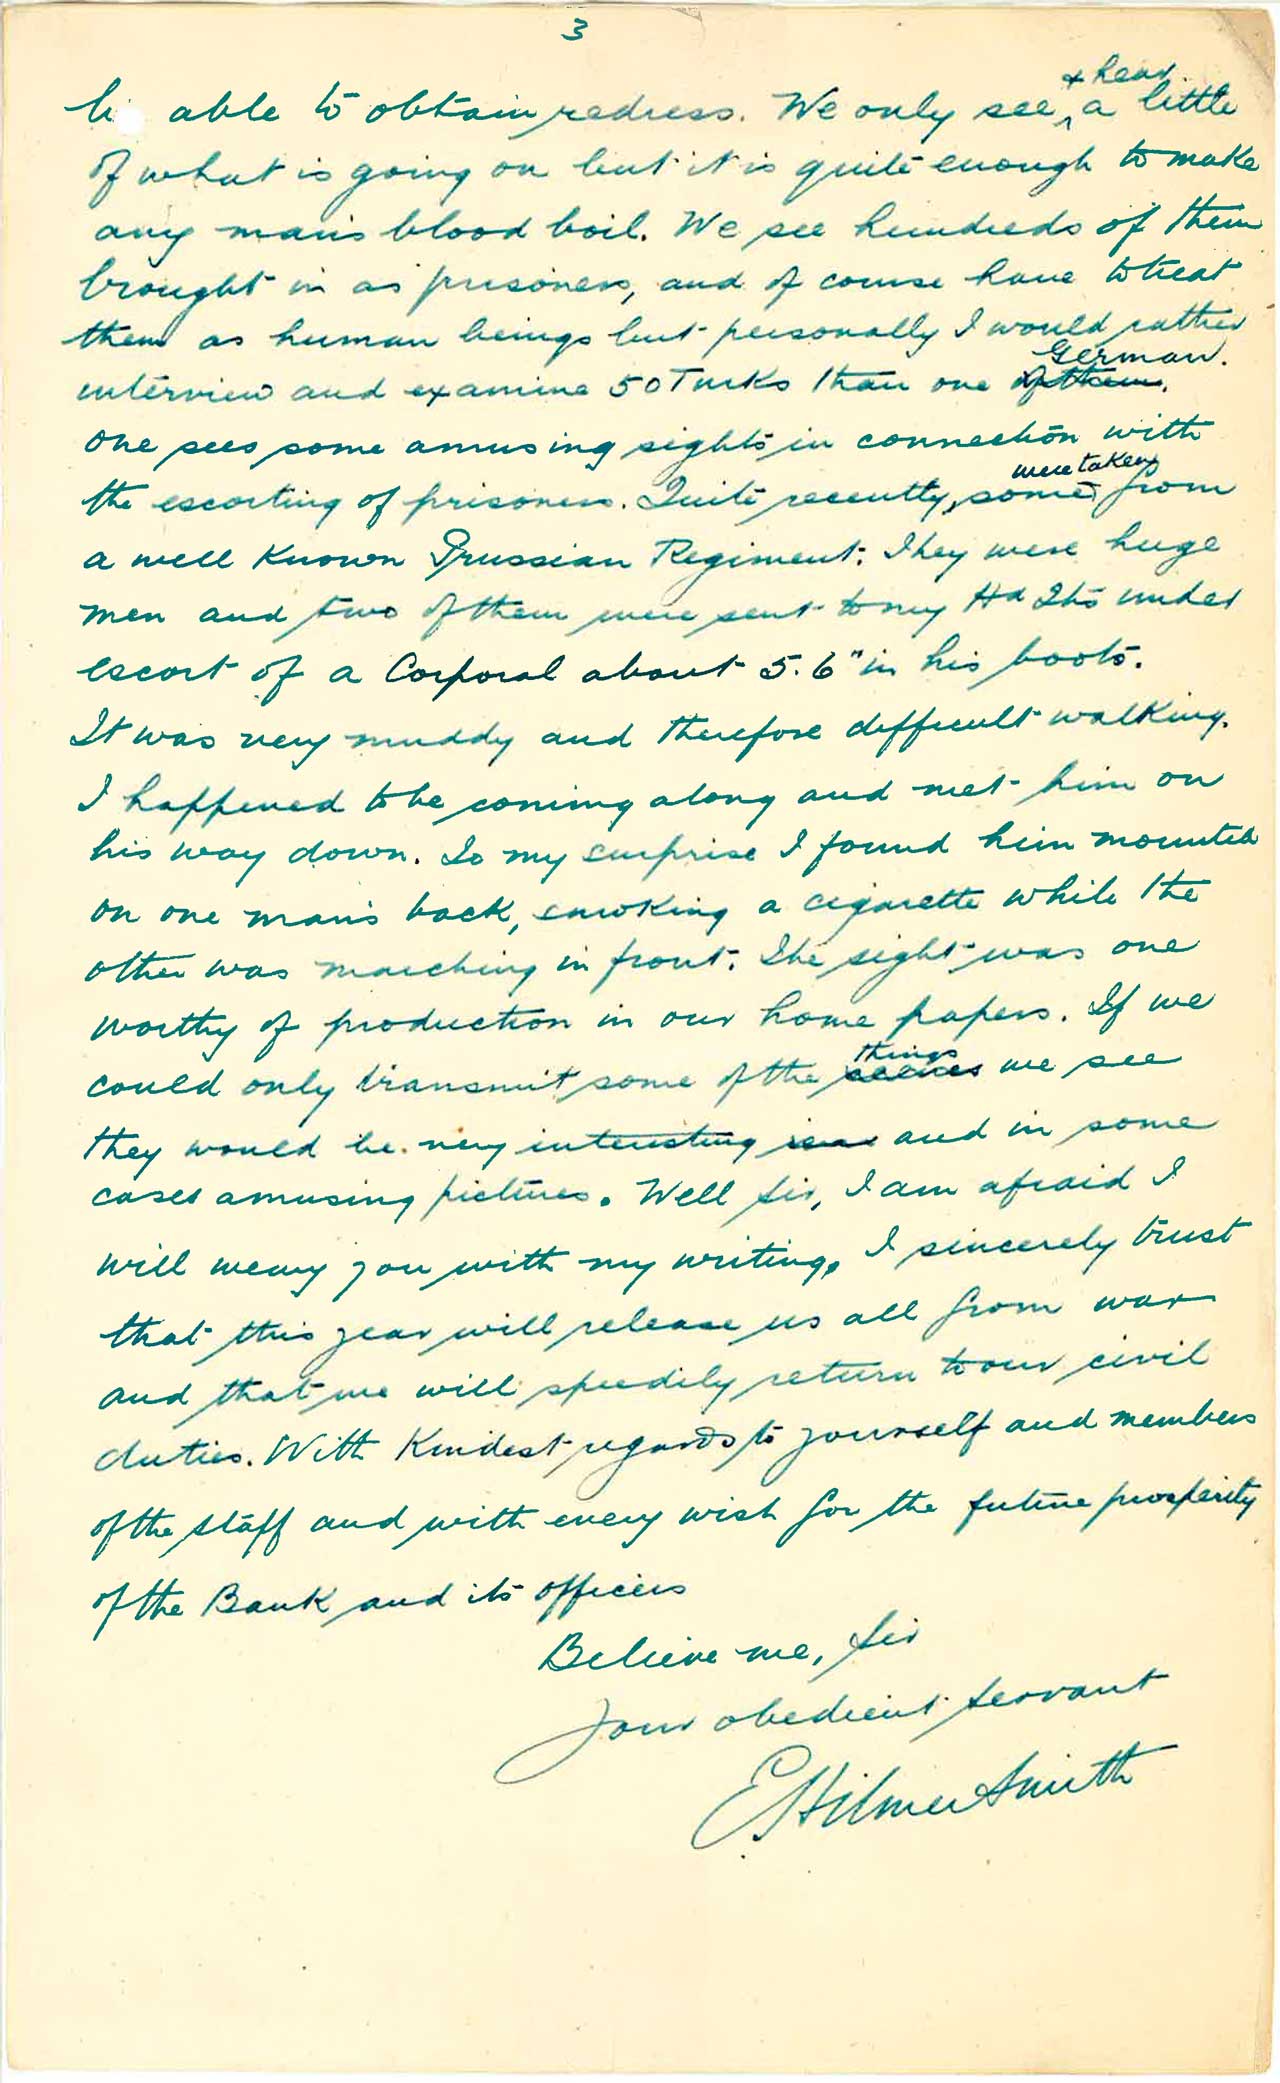 3
be able to obtain redress. We only see & hear a little
of what is going on but it is quite enough to make
any man's blood boil. We see hundreds of them
brought in as prisoners, and of course have to treat
them as human beings but personally I would rather
interview and examine 50 Turks than one of them. German.
One sees some amusing sights in connection with
the escorting of prisoners. Quite recently, some were taken from
a well Known Prussian Regiment. They were huge
men and two of them were sent to my Hd Qts under
escort of a Corporal about 5.6" in his boots.
It was very muddy and therefore difficult walking.
I happened to be coming along and met him on
his way down. To my surprise I found him mounted
on one man's back, smoking a cigarette while the
other was marching in front. The sight was one
worthy of production in our home papers. If we
could only transmit some of the scenes things we see
they would be very interesting and in some
cases amusing pictures. Well Sir, I am afraid I
will weary you with my writing. I sincerely trust
that this year will release us all from war
and that we will speedily return to our civil
duties. With Kindest regards to yourself and members
of the staff and with every wish for the future prosperity
of the Bank and its officers
Believe me, Sir
Your obedient Servant
E Hilmer Smith